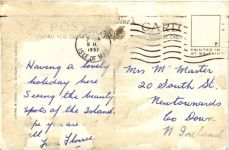 POST CARD
PRINTED IN
1957
ISLE OF
Having a lovely
holiday here
Seeing the beauty
spots of the Island.
Hope you are
well
Mrs McMaster
20 South St.
Newtownards
Co Down
N Ireland